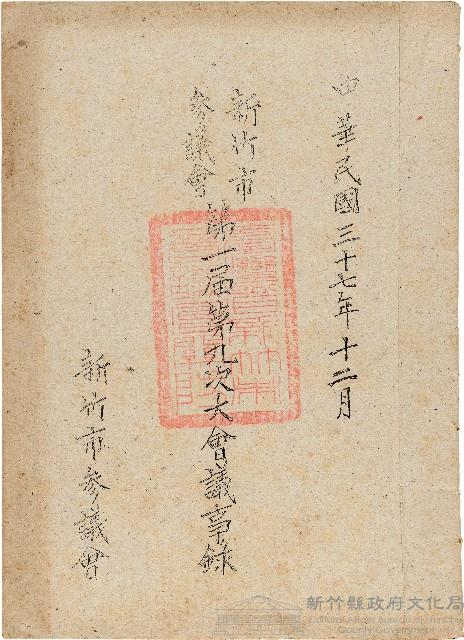 中華民國三十七年十二月
新竹市
參議會
第一屆第九次大會議事錄
新竹市參議會
新竹縣政府文化局
Cultural Affairs Bureau of Hsinchu
County Government